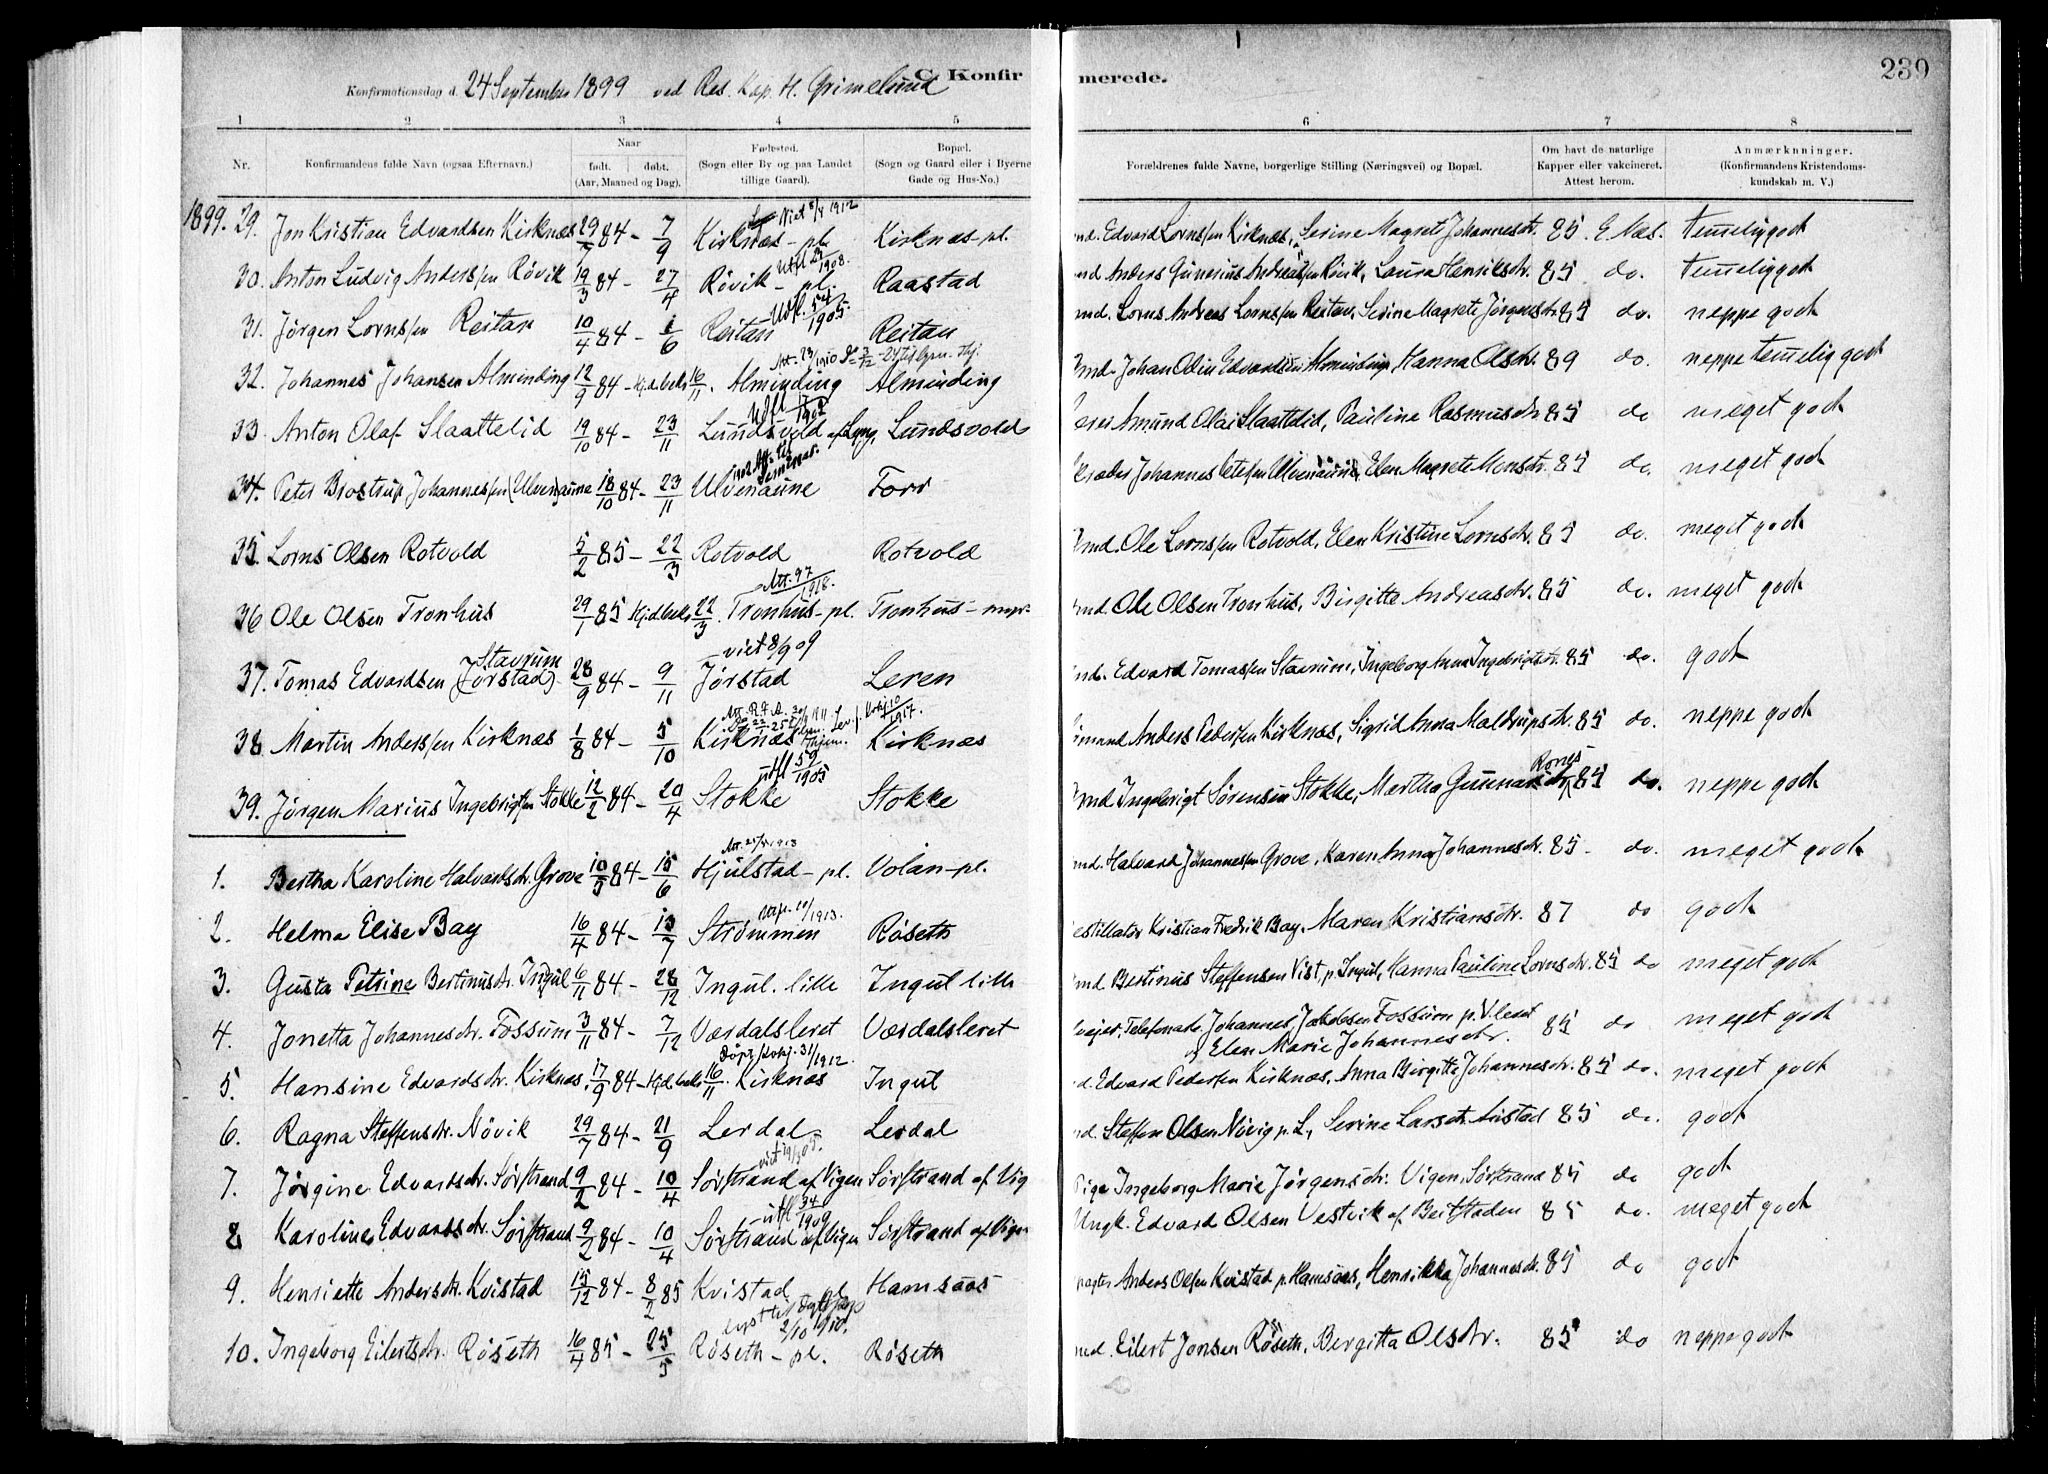 C. Konfir merede. 239
Konfirmationsdag d. 24 September 1899 ved Res. Kap. H. Grimelund
1 2 3 4 5 6 7 8
Nr. Konfirmandens fulde Navn (ogsaa Efternavn.) Naar født. døbt. (Aar, Maaned og Dag). Fødested. (Sogn eller By og paa Landet tillige Gaard). Bopæl. (Sogn og Gaard eller i Byerne Gade og Hus-No.) Forældrenes fulde Navne, borgerlige Stilling (Næringsvei) og Bopæl. Om havt de naturlige Kapper eller vakcineret. Attest herom. Anmærkninger. (Konfirmandens Kristendomskundskab m. V.)
Viet 8/4 1912
1899. 29. Jon Kristian Edvardsen Kirknæs 29/7 84 - 7/9 Kirknæs - pl. Kirknæs - pl. md. Edvard Lornssen Kirknæs, Serine Magrete Johannesdr. 85. E Næs. temelig godt
1908.
30. Anton Ludvig Anderssen Rövik 19/3 84 - 27/4 Rövik - pl. Raastad md. Anders Gunerius Andreassen Rövik, Laura Henriksdr. 85 do. temelig godt
Udfl. 54/1905
31. Jörgen Lornssen Reitan 10/4 84 - 1/6 Reitan Reitan md. Lorns Andreas Lornssen Reitan, Serine Magrete Jörgensdr. 85 do. neppe godt
Att. 23/1910
32. Johannes Johansen Alminding 12/9 84 - Hj.d. bek. 16/11. Alminding Alminding md. Johan Odin Edvardsen Alminding, Hanna Olsdr. 89 do. neppe temelig godt
Udfl 1902
33. Anton Olaf Slaattelid 19/10 84 - 23/11 Lundsvold af Lyng. Lundsvold Amund Olai Slaattelid, Pauline Rasmusdr 85 do meget godt
1902 Att. til Seminar.
34. Peter Brostrup Johannessen (Ulven)aune 18/10 84 - 23/11 Ulvenaune Forr Johannes Petersen Ulvenaune, Elen Magrete Monsdr. 85 do. meget godt
35. Lorns Olsen Rotvold 5/2 85 - 22/3 Rotvold Rotvold md. Ole Lornssen Rotvold, Elen Kristine Lornsdr. 85 do. meget godt
Att. 97/1918.
36 Ole Olsen Tronhus 29/1 85 Hj.d. bek. 22/3. Tronhus - pl. Tronhus - md. Ole Olsen Tronhus, Birgitte Andreasdr. 85 do. meget godt
viet 8/9 09
37. Tomas Edvardsen Stavrum (Jörstad) 28/9 84 - 9/11 Jörstad Leren md. Edvard Tomassen Stavrum, Ingeborg Anna Ingebrigtsdr. 85 do. godt
38 Martin Anderssen Kirknæs 1/8 84 - 5/10 Kirknæs Kirknæs Anders Pedersen Kirknæs, Sigrid Anna Maldrupsdr. 85 do. neppe godt
utfl 59/1905
39. Jörgen Marius Ingebrigtsen Stokke 12/2 84 - 20/4 Stokke Stokke md Ingebrigt Sörensen Stokke, Martha Gunnarsdr. Rones 85 do. neppe godt
1. Bertha Karoline Halvardsdr. Grove 10/5 84 - 15/6 Hjulstad - pl. Volan - pl. md. Halvard Johannessen Grove, Karen Anna Johannesdr. 85 - do. meget godt
1913.
2. Helma Elise Bay 16/4 84 - 13/7 Strömmen Röseth Kristian Fredrik Bay, Maren Kristiansdr. 87 do godt
3. Gusta Petrine Bertinusdr. Ingul 6/11 84 - 28/12 Ingul. lille Ingul lille md Bertinus Steffensen Vist, p. Ingul, Hanna Pauline Lornsdr. 85 do meget godt
4. Jonetta Johannesdr. Fossum 3/11 84 - 7/12 Værdalsleret Værdalsleret Johannes Jakobsen Fossum p. V.leret og Elen Marie Johannesdr. 85 do meget godt
31/1912.
5. Hansine Edvardsdr. Kirknæs 17/9 84 - Hj.d. bek. 16/11. Kirknæs Ingul Edvard Pedersen Kirknæs, Anna Birgitte Johannesdr. 85 do. meget godt
6. Ragna Steffensdr. Növik 29/7 84 - 21/9 Lerdal Lerdal Steffen Olsen Növig p. L, Serine Larsdr. Austad 85 do. godt
7. Jörgine Edvardsdr. Sörstrand 9/2 84 - 10/4 Sörstrand af Vigen Sörstrand af Vig Pige Ingeborg Marie Jörgensdr. Vigen, Sörstrand 85 do godt
utfl 34/1909
8 Karoline Edvardsdr. Sörstrand 9/2 84 - 10/4 Sörstrand af Vigen Sörstrand af Vigen Ungk. Edvard Olsen Vestvik af Beitstaden 85 do. meget godt
9. Henriette Andersdr. Kvistad 15/12 84 - 8/2 85 Kvistad pl. Hamsaas Anders Olsen Kvistad p. Hamsaas, Henrikka Johannesdr. 85 do godt
2/10 1910.
10. Ingeborg Eilertsdr. Röseth 16/4 85 - 25/5 Röseth - pl. Röseth md. Eilert Jonsen Röseth, Bergitta Olsdr. 85 do neppe godt